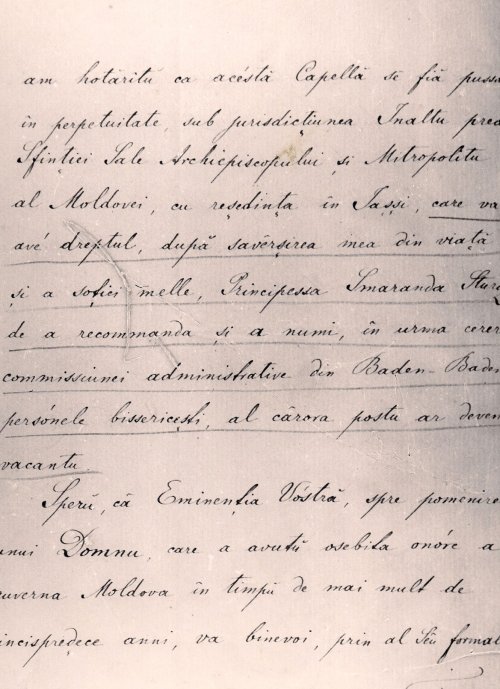 am hotărîtŭ ca acéstă Capellă sĕ fiă pussă
în perpetuitate, sub jurisdicţiunea Inaltu prea
Sfinţiei Sale Archiepiscopului şi Mitropolitu
al Moldovei, cu reşedinţa în Iaşşi, care va
avé dreptul, după savêrşirea mea din viaţă
şi a soţiei melle, Principessa Smaranda Sturd
de a recommanda şi a numi, în urma cerer
commissiunei administrative din Baden-Baden
persónele bissericeşti, al cărora postu ar deven
vacantu.
Sperŭ, că Eminenţia Vóstră, spre pomenire
unui Domnu, care a avutŭ osebita onóre a
guverna Moldova în timpŭ de mai mult de
cincisprĕdece anni, va binevoi, prin al Sĕu formal